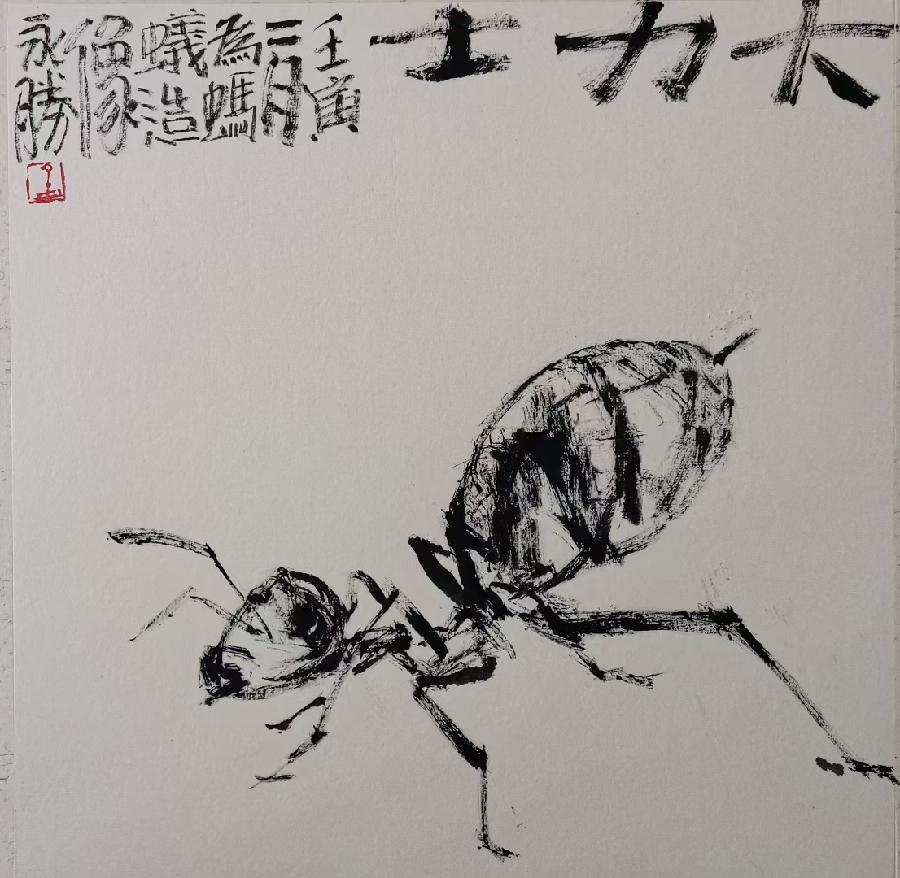 大力士
壬寅
二月
為螞
蟻造
像
永勝